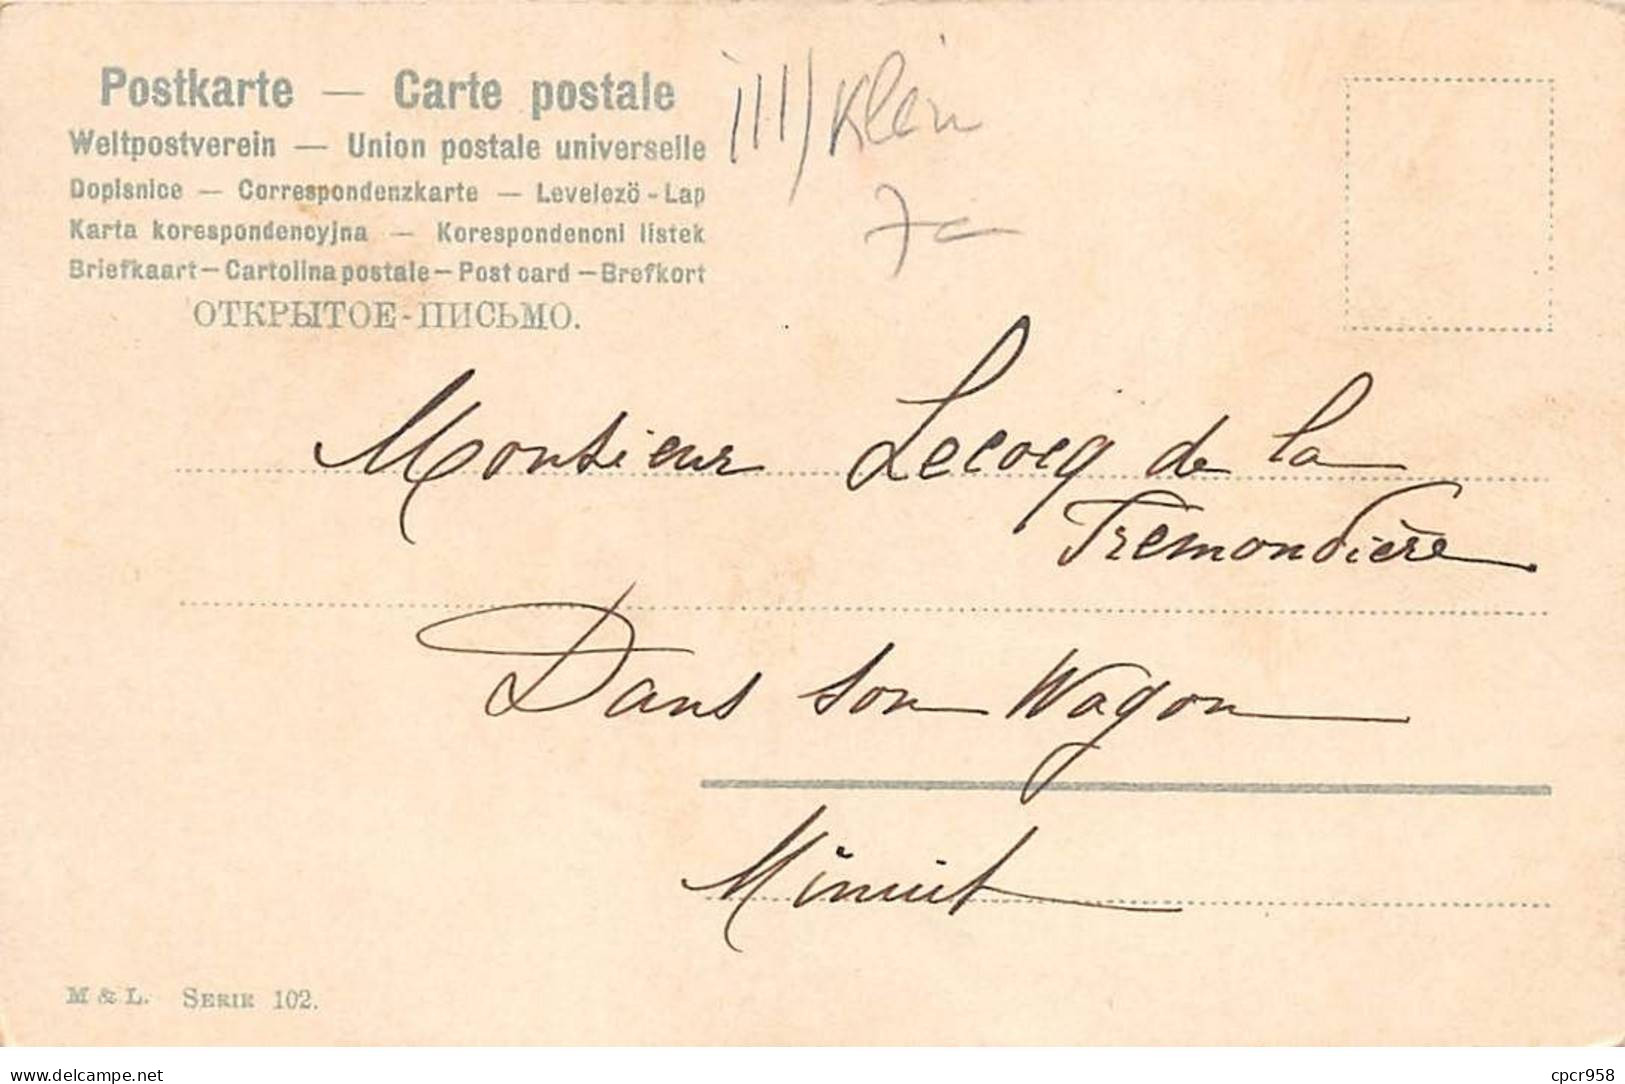 Postkarte — Carte postale
Weltpostverein — Union postale universelle
Dopisnice — Correspondenzkarte — Levelezö-Lap
Karta korespondencyjna — Korespondencni listek
Briefkaart — Cartolina postale — Post card — Brefkort
ОТКРЫТОЕ-ПИСЬМО.
Klein
Monsieur Lecocq de la
Tremondière
Dans son Wagon
Minuit
M & L. SERIE 102.
delcampe.net
cpcr958